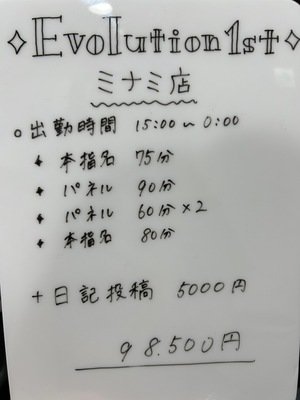 ✧Evolution1st✧
ミナミ店
○出勤時間 15:00〜0:00
✦ 本指名 75分
✦ パネル 90分
✦ パネル 60分×2
✦ 本指名 80分
+日記投稿 5000円
98.500円